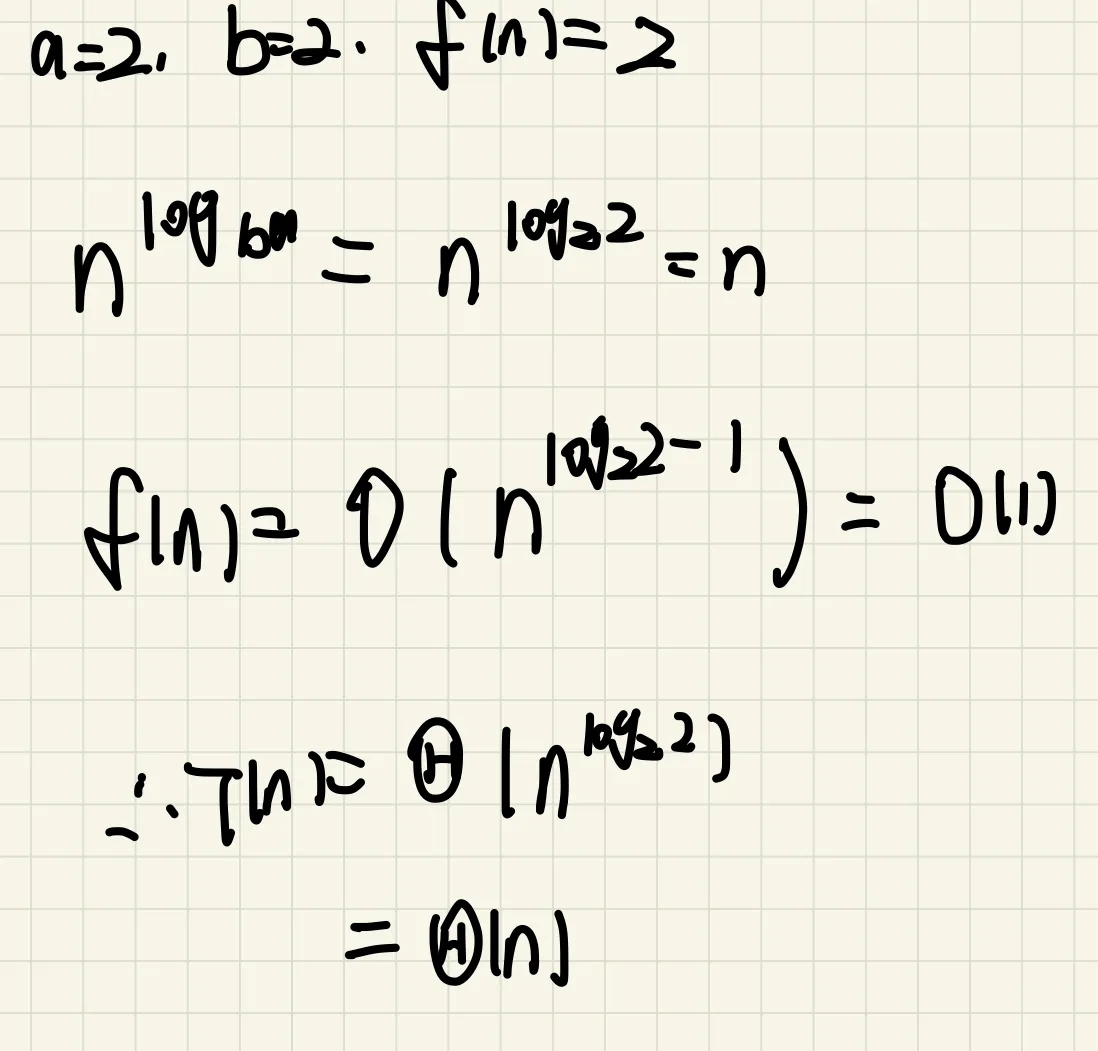 a=2, b=2. f(n)=2
n^{log_b a} = n^{log_2 2} = n
f(n)= O(n^{log_2 2-1}) = O(1)
∴ T(n)= Θ(n^{log_2 2})
= Θ(n)